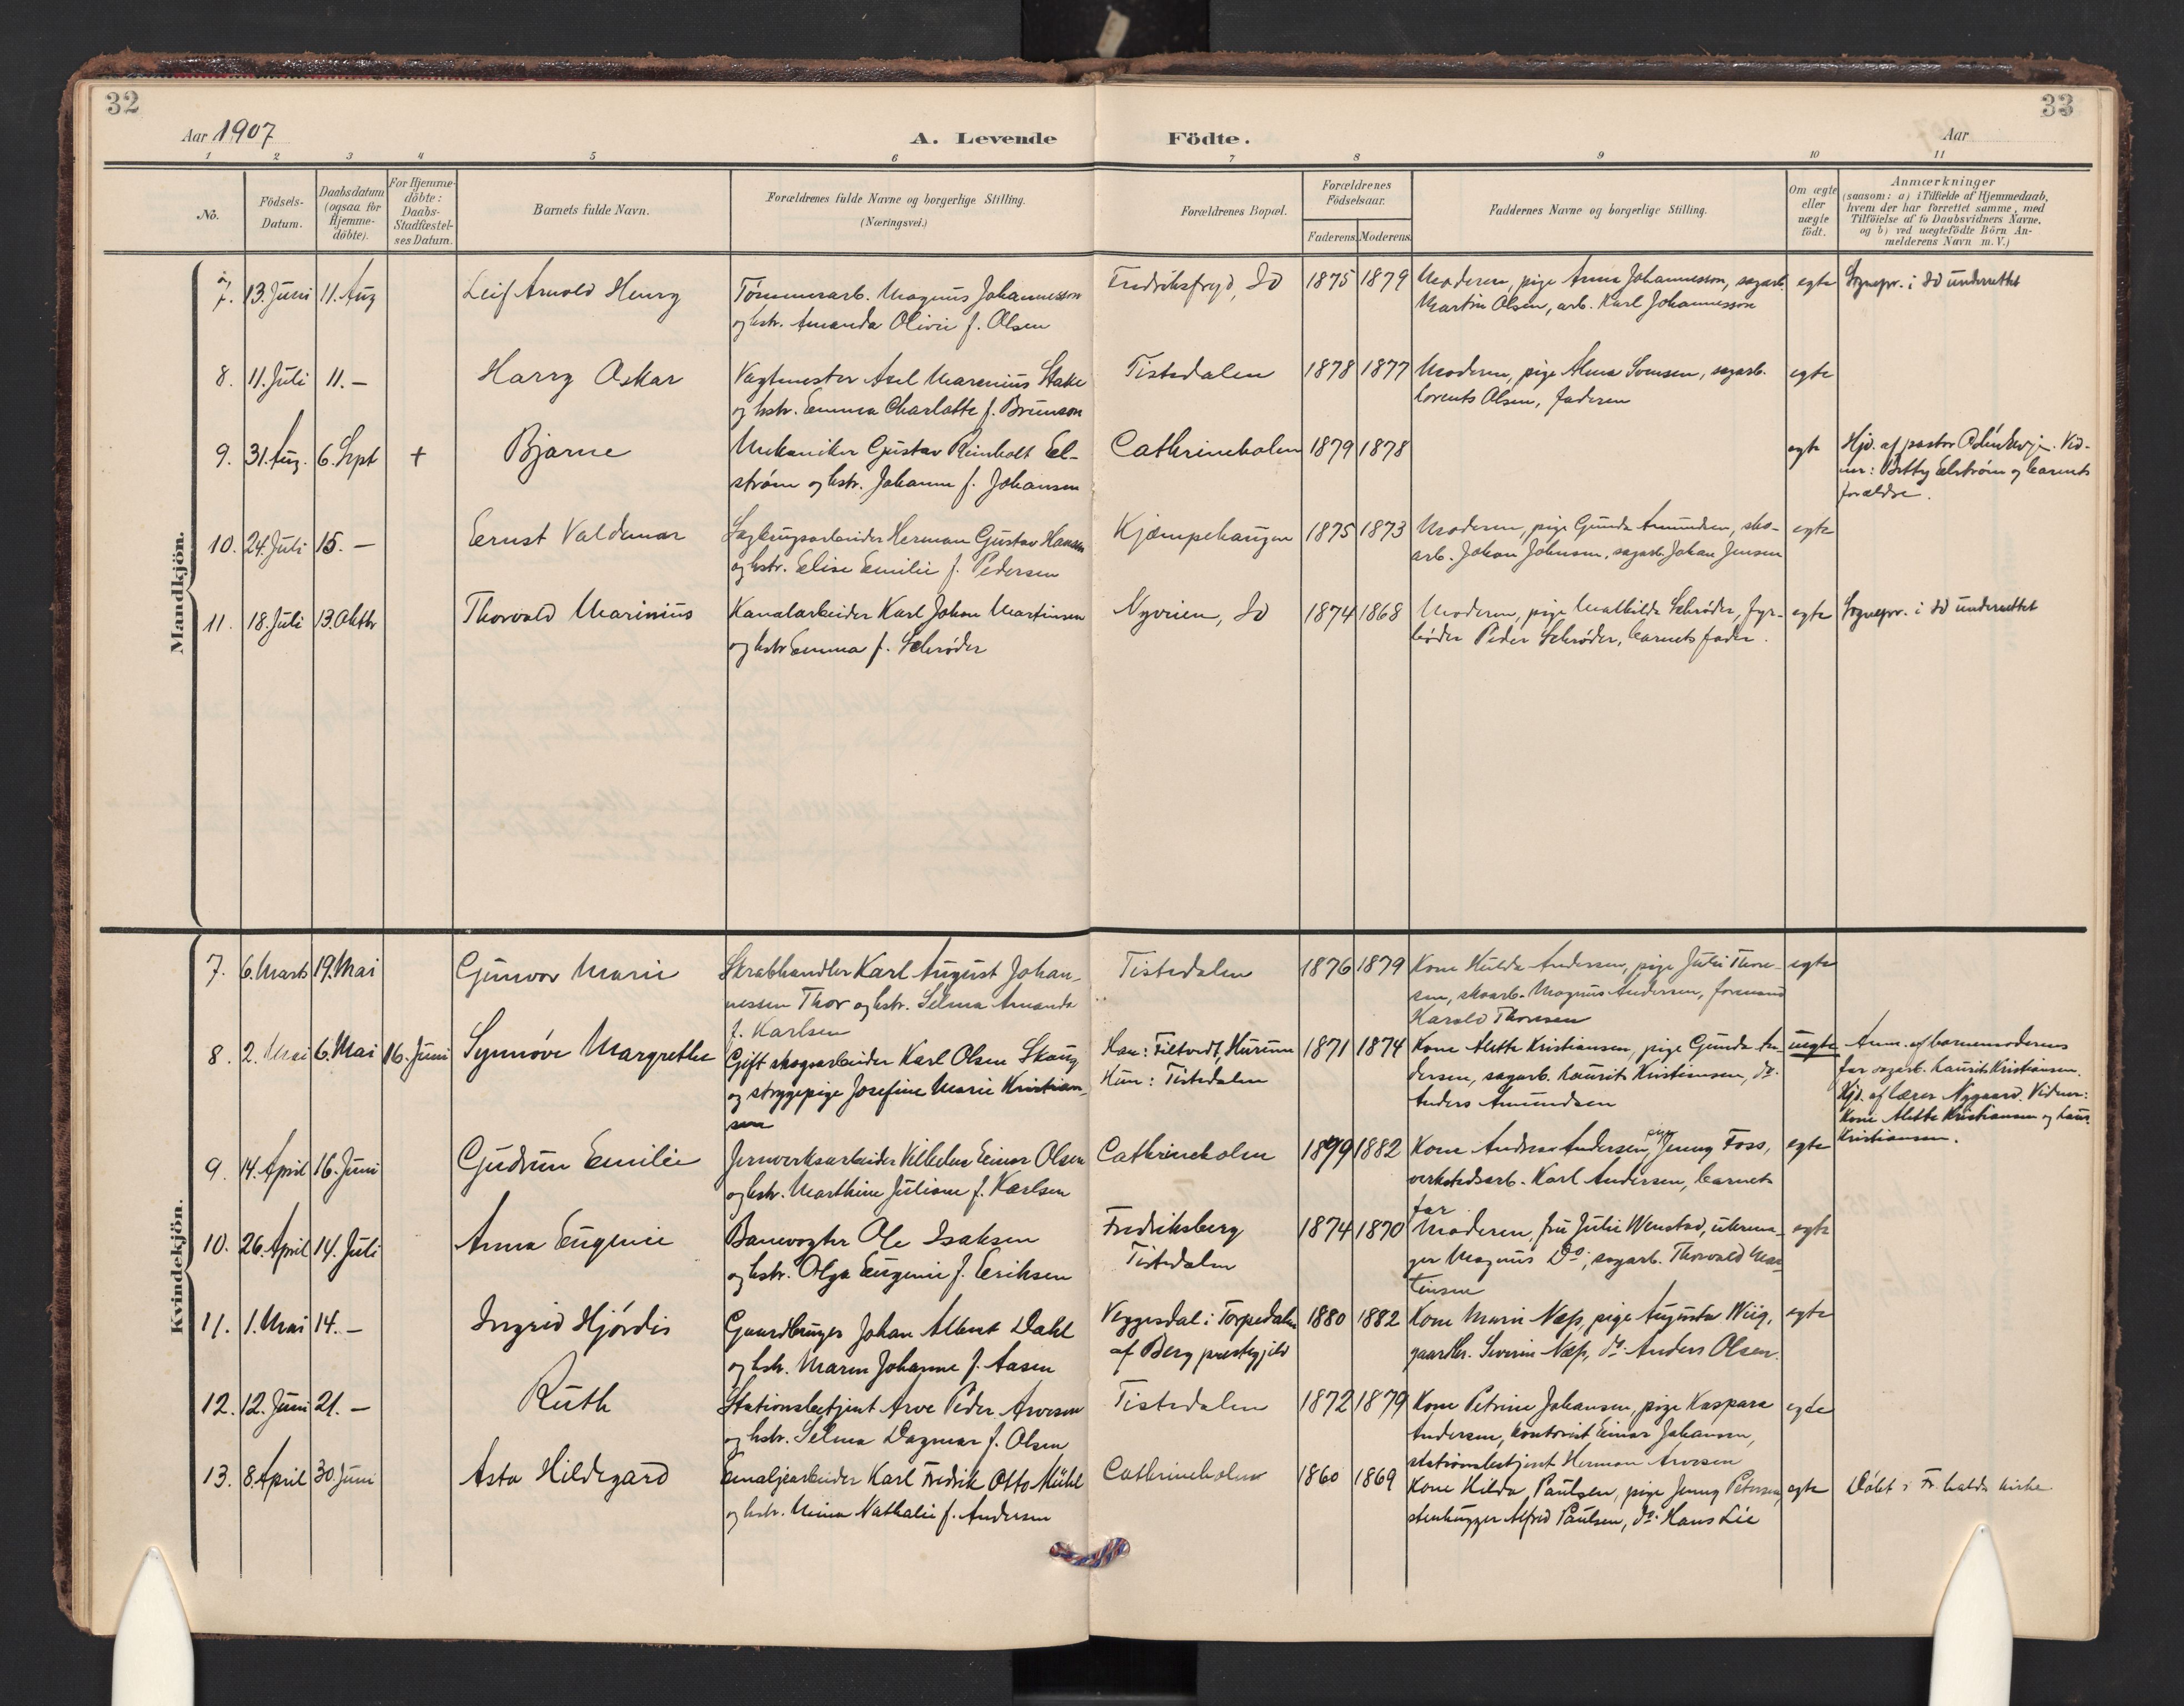 32
33
Aar 1907
A. Levende
Födte.
Aar
1 2 3 4 5 6 7 8 9 10 11
No.
Födsels-
Datum.
Daabsdatum
(ogsaa for
Hjemme-
döbte).
For Hjemme-
döbte:
Daabs-
Stadfæstel-
ses Datum.
Barnets fulde Navn.
Forældrenes fulde Navne og borgerlige Stilling.
(Næringsvei.)
Forældrenes Bopæl.
Forældrenes
Födselsaar.
Faderens. Moderens.
Faddernes Navne og borgerlige Stilling.
Om ægte
eller
uægte
födt.
Anmærkninger
(saasom: a) i Tilfælde af Hjemmedaab,
hvem der har forrettet samme, med
Tilföielse af to Daabsvidners Navne,
og b) ved uægtefödte Börn An-
melderens Navn m. V.)
Mandkjön.
7. 13. Juni 11. Aug Leif Arnold Henry Tømmerarb. Magnus Johannesson Fredriksfryd, Id 1875 1879 Moderen, pige Anna Johannesson, sagarb. egte Sognepr. i Id underrettet
og hstr. Amanda Olivie f. Olsen Martin Olsen, arb. Karl Johannesson
8. 11. Juli 11. — Harry Oskar Vagtmester Axel Marenius Stake Tistedalen 1878 1877 Moderen, pige Alma Svensen, sagarb. egte
og hstr. Emma Charlotte f. Brunson Lorents Olsen, faderen
9. 31. Aug. 6. Sept + Bjarne Mekaniker Gustav Reinholt Eel- Cathrineholm 1879 1878 egte Hjd. af pastor Vid-
strøm og hstr. Johanne f. Johansen ner: Betty Elstrøm og barnets
forældre.
10. 24. Juli 15. — Ernst Valdemar Sagbrugsarbeider Herman Gustav Hansen Kjæmpehaugen 1875 1873 Moderen, pige Gunda Amundsen, sko- egte
og hstr. Elise Emilie f. Pedersen arb. Johan Johnsen, sagarb. Johan Jensen
11. 18. Juli 13. Oktbr Thorvald Marinius Kanalarbeider Karl Johan Martinsen Nyveien, Id 1874 1868 Moderen, pige Mathilde Schrøder, fyr- egte Sognepr. i Id underrettet
og hstr Emma f. Schrøder bøder Peder Schrøder, barnets fader.
Kvindekjön.
7. 6. Marts 19. Mai Gunvor Marie Skraphandler Karl August Johan- Tistedalen 1876 1879 Kone Hulda Andersen, pige Julie Thore- egte
nessen Thor og hstr. Selma Amanda sen, skoarb. Magnus Andersen, formand
f. Karlsen Harald Thoresen
8. 2. Mai 6. Mai 16. Juni Synnøve Margrethe Gift skogsarbeider Karl Olsen Skaug Han: Filtvedt, Hurum 1871 1874 Kone Alette Kristiansen, pige Gunda An- uegte Anm. af barnemoderens
og strygepige Josefine Marie Kristian- Hun: Tistedalen dersen, sagarb. Laurits Kristiansen, do. far sagarb. Laurits Kristiansen.
sen Anders Amundsen Hjd. af lærer Nygaard. Vidner:
Kone Alette Kristiansen og Laur.
Kristiansen.
9. 14. April 16. Juni Gudrun Emilie Jernverksarbeider Vilhelm Einar Olsen Cathrineholm 1879 1882 Kone Andrea Andersen, pige Jenny Foss, egte
og hstr. Marthine Juliane f. Karlsen verkstedsarb. Karl Andersen, barnets
far
10. 26. April 14. Juli Anna Eugenie Banevogter Ole Isaksen Fredriksberg 1874 1870 Moderen, fru Julie Wenstad, uhrma- egte
og hstr. Olga Eugenie f. Eriksen Tistedalen ger Magnus Do, sagarb. Thorvald Mar-
tinsen
11. 1. Mai 14. — Ingrid Hjørdis Gaardbruger Johan Albert Dahl Veggesdal i Torpedalen 1880 1882 Kone Marie Næss, pige Augusta Wiig, egte
og hstr. Maren Johanne f. Aasen af Berg prestegjeld gaardbr. Severin Næss, do. Anders Olsen.
12. 12. Juni 21. — Ruth Stationsbetjent Arve Peder Arvesen Tistedalen 1872 1879 Kone Petrine Johansen, pige Kaspara egte
og hstr. Selma Dagmar f. Olsen Andersen, kontorist Einar Johansen,
stationsbetjent Herman Arvesen
13. 8. April 30. Juni Asta Hildegard Emaljearbeider Karl Fredrik Otto Mühl Cathrineholm 1860 1869 Kone Hilda Paulsen, pige Jenny Petersen, egte Døbt i Fr.halds kirke
og hstr. Mina Nathalie f. Andersen stenhugger Alfred Paulsen, do. Hans Lie